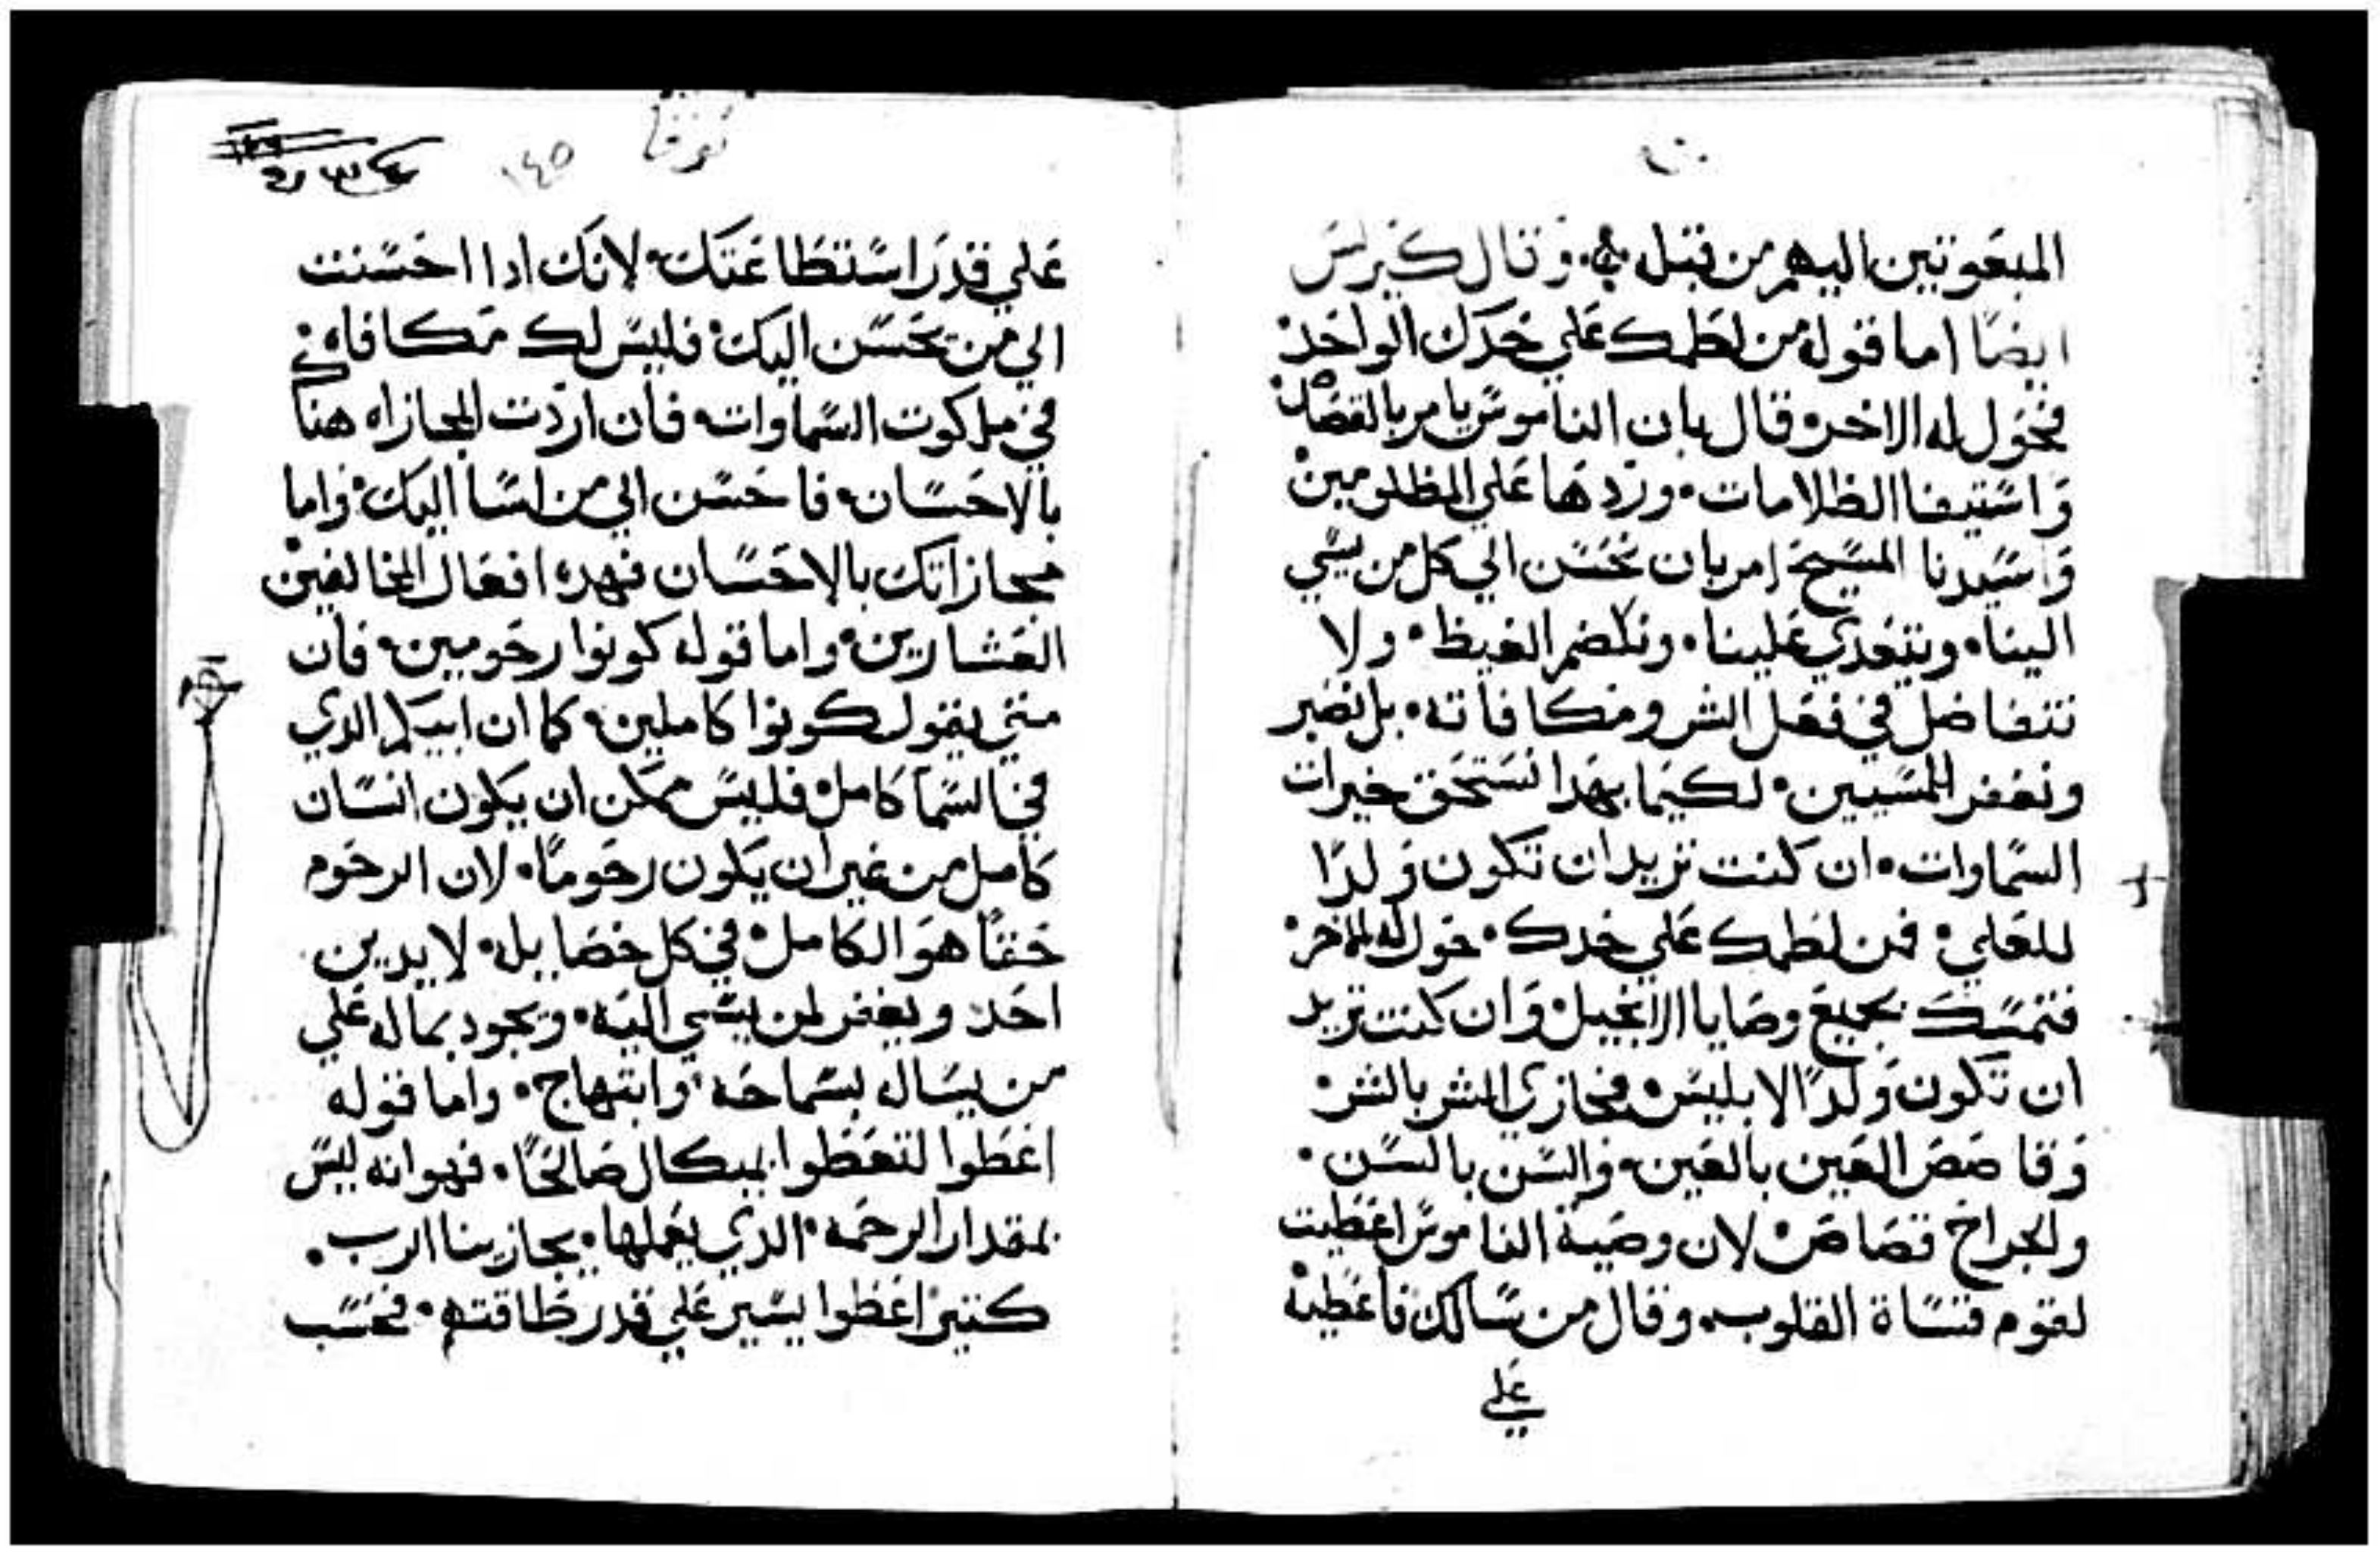 المبعوتين اليهم من قبله وقال كيرلس
ايضًا اما قوله من لطمك علي خدك الواحد
فحول له الاخر قال بان الناموس يامر بالقصاص
واستيفا الظلامات وردها علي المظلومين
واسيدنا المسيح امر بان نحسن الي كل من يسي
الينا ويتعدي علينا ونكضم الغيظ ولا
نتفاضل في فعل الشر ومكافاته بل نصبر
ونغفر للمسيين لكيما بهدا نستحق خيرات
السماوات ان كنت تريد ان تكون ولدًا
للعلي فمن لطمك علي خدك حول له الاخر
فتمسك بجميع وصايا الانجيل وان كنت تريد
ان تكون ولدًا لابليس فجازي الشر بالشر
وقاصص العين بالعين والسن بالسن
والجراح قصاص لان وصية الناموس اعطيت
لقوم قساة القلوب وقال من سالك فاعطيه
علي
لوقا
١٤٥
علي قدر استطاعتك لانك ادا احسنت
الي من يحسن اليك فليس لك مكافاه
في ملكوت السماوات فان اردت المجازاه هنا
بالاحسان فاحسن الي من اسا اليك واما
مجازاتك بالاحسان فهده افعال المخالفين
العشارين واما قوله كونوا رحومين فان
متي يقول كونوا كاملين كما ان ابيكم الدي
في السما كامل فليس ممكن ان يكون انسان
كامل من غير ان يكون رحومًا لان الرحوم
حقًا هو الكامل في كل خصايله لا يدين
احد ويغفر لمن يسي اليه ويجود بماله علي
من يساله بسماحه وابتهاج واما قوله
اعطوا لتعطوا بميكال صالحًا فهو انه ليس
بمقدار الرحمه الدي يعملها يجازينا الرب
كتير اعطوا يسير علي قدر طاقتهم فحسب